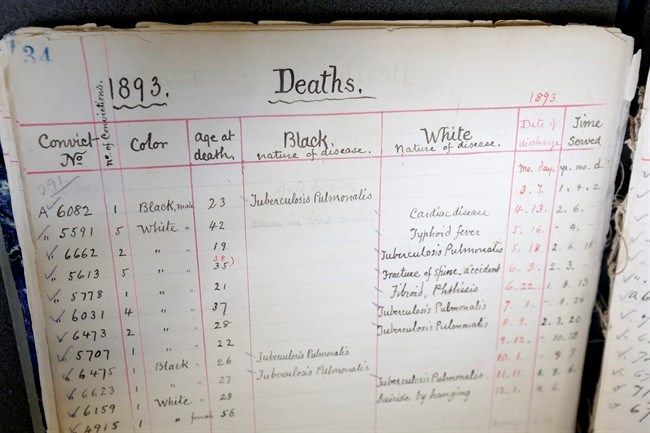 34
1893. Deaths.
1893
Convict No. No. of Convictions. Color age at death. Black nature of disease. White Nature of disease. Date of discharge Time Served
mo. day. yr. mo. d.
291
A 6082 1 Black, male 23 Tuberculosis Pulmonalis 3. 7. 1. 4. 2
" 5591 5 White " 42 Cardiac disease 4. 13. 2. 6. -
" 6662 2 " " 19 Typhoid fever 5. 16. - 4. -
" 5613 5 " " 35 38 Tuberculosis Pulmonatis 5. 18. 2. 6.
" 5778 1 " " 21 Fracture of spine, accident 6. 3. 2. 3. -
" 6031 4 " " 37 Fibroid, Phthisis 6. 22. 1. 8. 13
" 6473 2 " " 28 Tuberculosis Pulmonalis 7. 1. - 8. 24
" 5707 1 " " 22 Tuberculosis Pulmonalis 8. 9. 2. 2. 20
" 6475 1 Black " 26 Tuberculosis Pulmonalis 9. 12. - 10.
" 6623 1 " " 27 Tuberculosis Pulmonalis 10. 1. - 9. 7
" 6159 1 White " 28 Tuberculosis Pulmonalis 11. 11.
" 4915 1 " female 56 Suicide by hanging 12. 1.